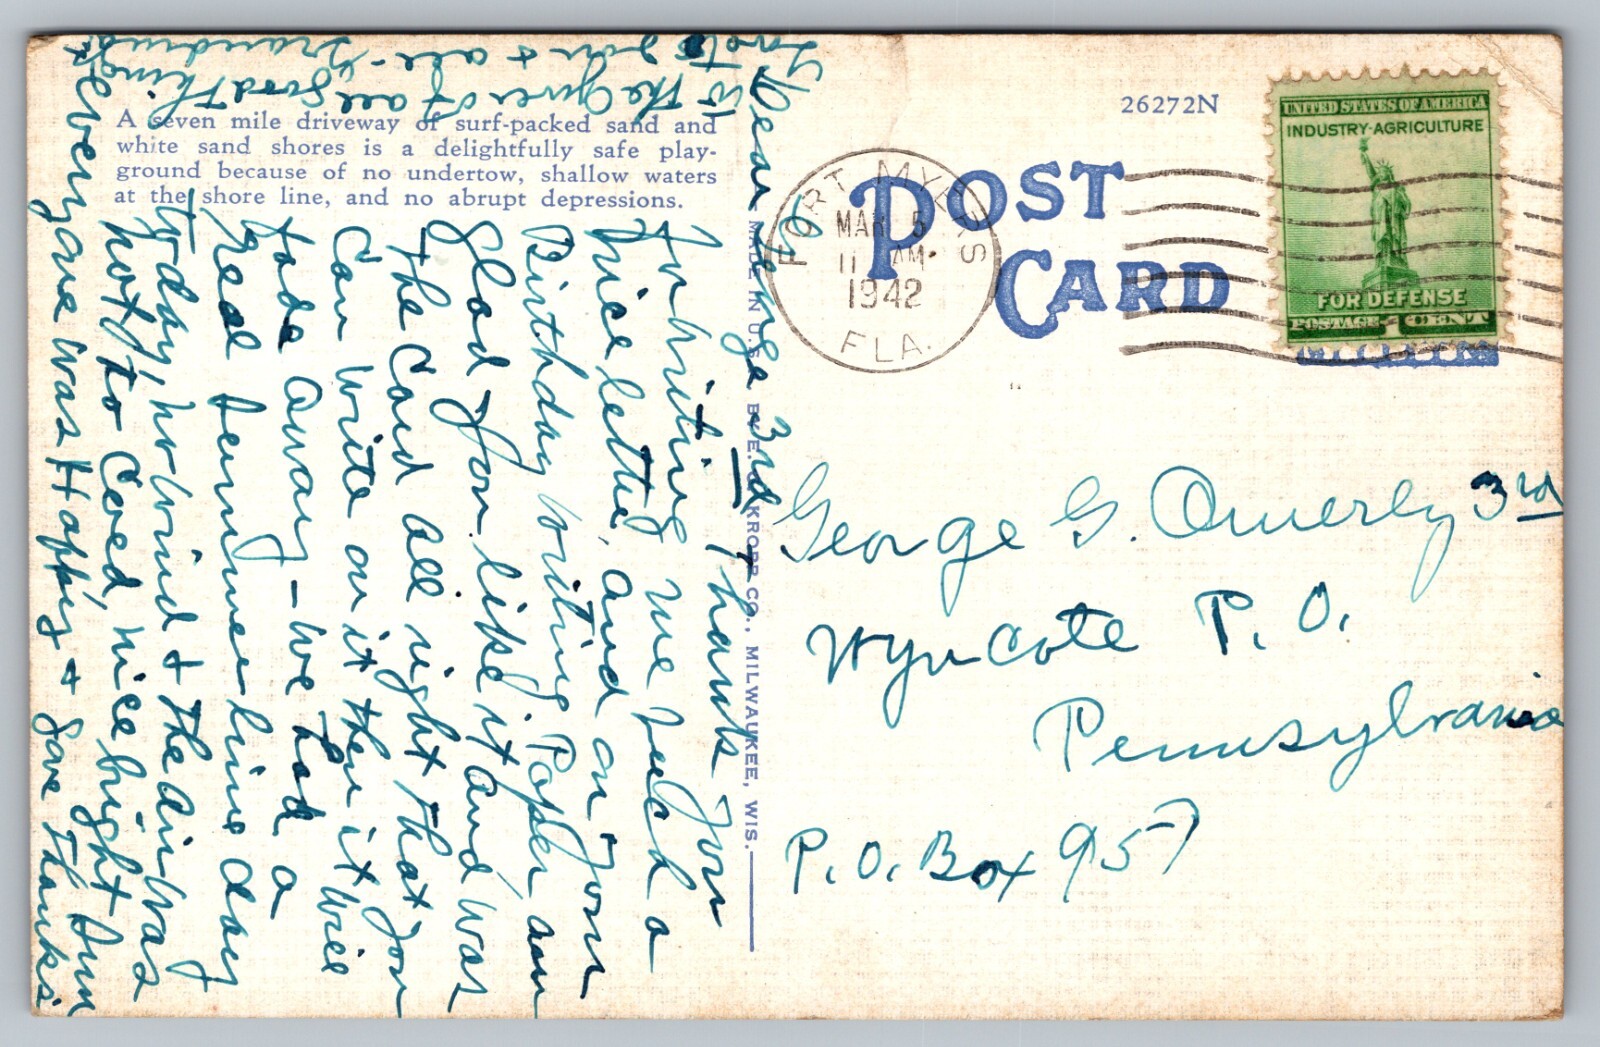 A seven mile driveway of surf-packed sand and
white sand shores is a delightfully safe play-
ground because of no undertow, shallow waters
at the shore line, and no abrupt depressions.
26272N
POST
CARD
FORT MYERS
MAR 5
11 AM
1942
FLA.
UNITED STATES OF AMERICA
INDUSTRY-AGRICULTURE
FOR DEFENSE
POSTAGE 1 CENT
MADE IN U.S. BY E. C. KROPP CO., MILWAUKEE, WIS.
Dear George 3rd Thank you
for writing me such a
nice letter, and on your
Birthday writing Paper, am
Glad you like it and was
the Card all right that you
Can write on it then it will
fade away - we had a
Real summer time day
today, no wind & the air was
not to Coed, nice bright Sun
everyone was Happy & gave thanks
to the Giver of all good things
Love to you & all -
George G. Omerly 3rd
Wyncote P. O.
Pennsylvania
P. O. Box 957